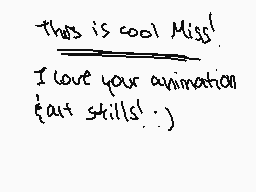 This is cool Miss!
I love your animation
& art skills! :)